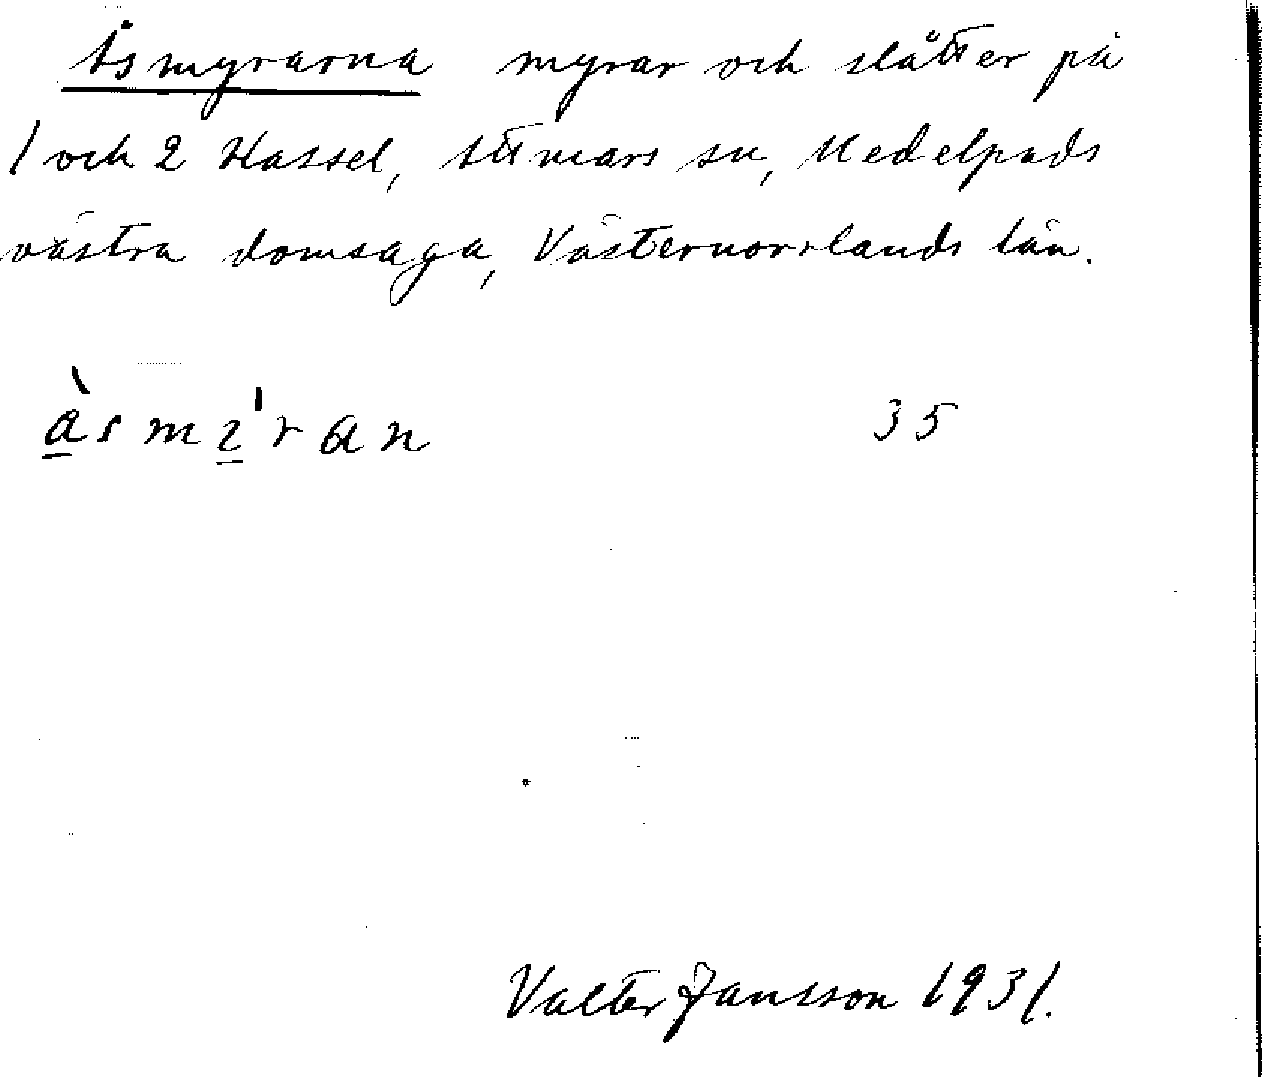 Åsmyrarna myrar och slåtter på
1 och 2 Hassel, Attmars sn, Medelpads
västra domsaga, Västernorrlands län.
àsmz'ran 35
Valter Jansson 1931.